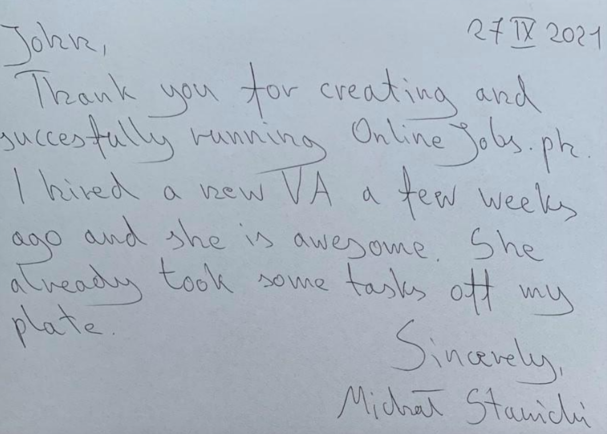 27 IX 2021
John,
Thank you for creating and
succesfully running OnlineJobs.ph.
I hired a new VA a few weeks
ago and she is awesome. She
already took some tasks off my
plate.
Sincerely,
Michał Stawicki